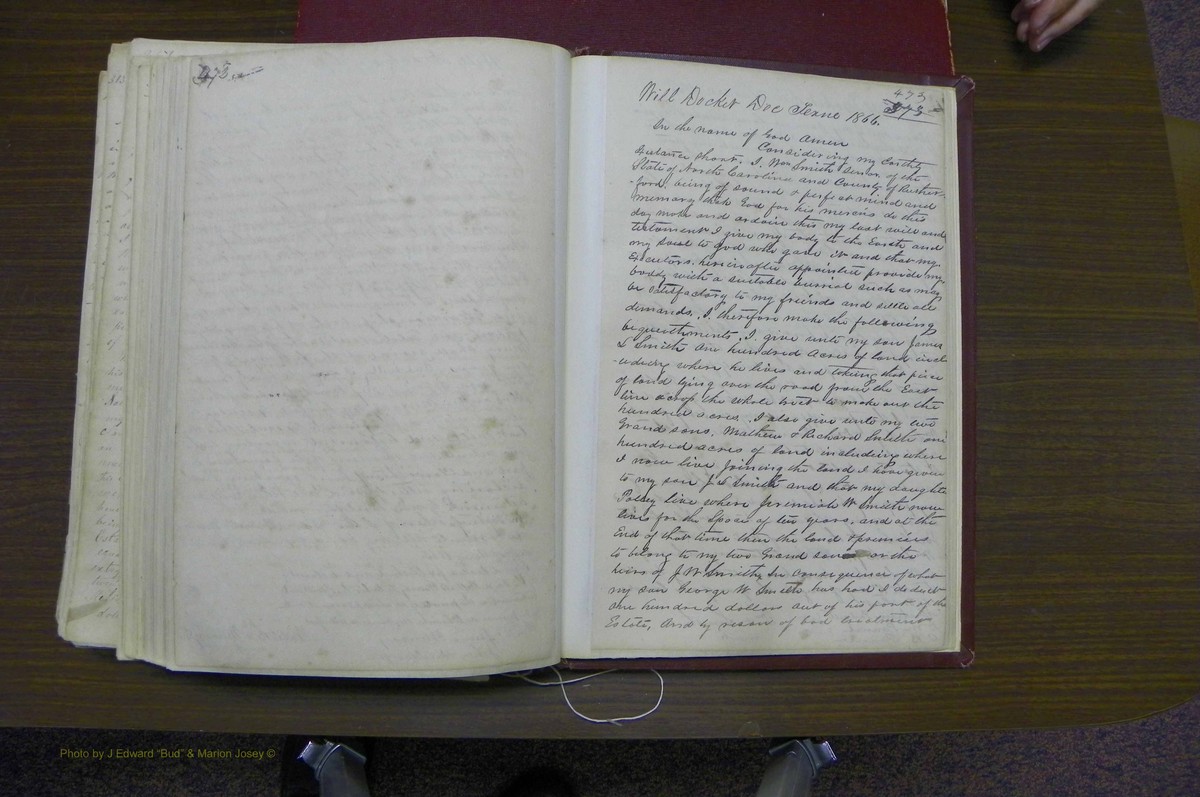 473
473
373
Will Docket Dec Term 1866.
In the name of God Amen
Considering my Earthly
Existance Short. I. Wm Smith Senior of the
State of North Carolina and County of Ruther-
-ford. being of sound & perfect mind and
memory thank God for his mercies do this
day make and ordain this my last will and
testament I give my body to the Earth and
my soul to god who gave it and that my
Executors. hereinafter appointed provide my
body with a suitable burial such as may
be satisfactory to my friends and settle all
demands. I. therefore make the following
bequeathments. I. give unto my son James
L Smith One hundred acres of land incl
-uding where he lives and taking that piece
of land lying over the road from the East
line across the whole tract to make out the
hundred acres. I also give unto my two
Grand sons. Mathew & Richard Smith one
hundred acres of land including where
I now live Joining the land I have given
to my son J L Smith and that my daughter
Polley live where Jeremiah W Smith now
lives for the Space of ten years. and at the
End of that time then the land & premises
to belong to my two Grand sons or the
heirs of J. W Smith. In consequence of what
my son George W Smith has had I deduct
one hundred dollars out of his part of the
Estate, And by reason of bad treatment
Photo by J Edward "Bud" & Marion Josey ©